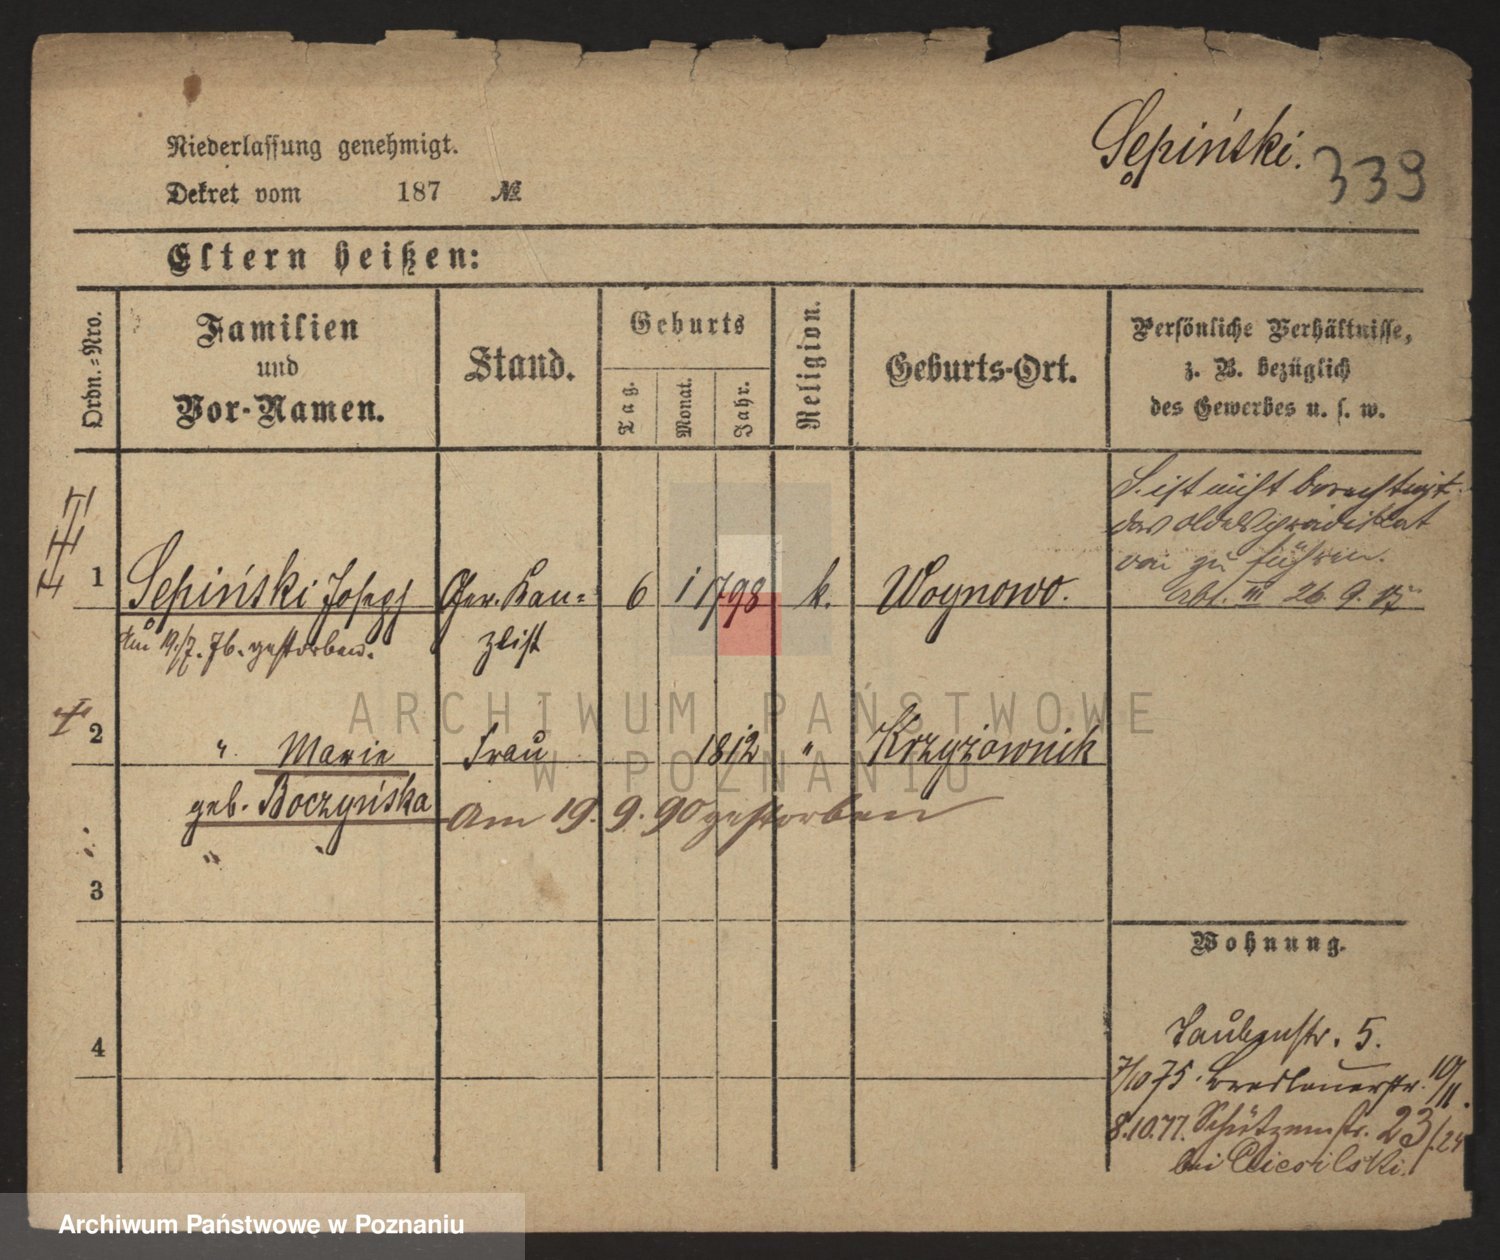 Niederlassung genehmigt.
Dekret vom 187 №
Sępiński.
339
Eltern heißen:
Ordn.=Nro.
Familien
und
Vor-Namen.
Stand.
Geburts
Tag.
Monat.
Jahr.
Religion.
Geburts-Ort.
Persönliche Verhältnisse,
z. B. bezüglich
des Gewerbes u. s. w.
S. ist nicht berechtigt
das Adelsprädikat
von zu führen.
III 26. 9.
1 Sepiński Joseph Ger. Kan= 6 1 1798 k. Woynowo.
Am 19./7. 76. gestorben. zlist
2 " Marie Frau 1812 " Krzyżownik
geb. Boczyńska Am 19. 9. 90 gestorben
3
Wohnung.
4
Taubenstr. 5.
7/10 75. Breslauerstr. 10/11.
8.10.77. Schützenstr. 23/24
bei
ARCHIWUM PAŃSTWOWE
W POZNANIU
Archiwum Państwowe w Poznaniu